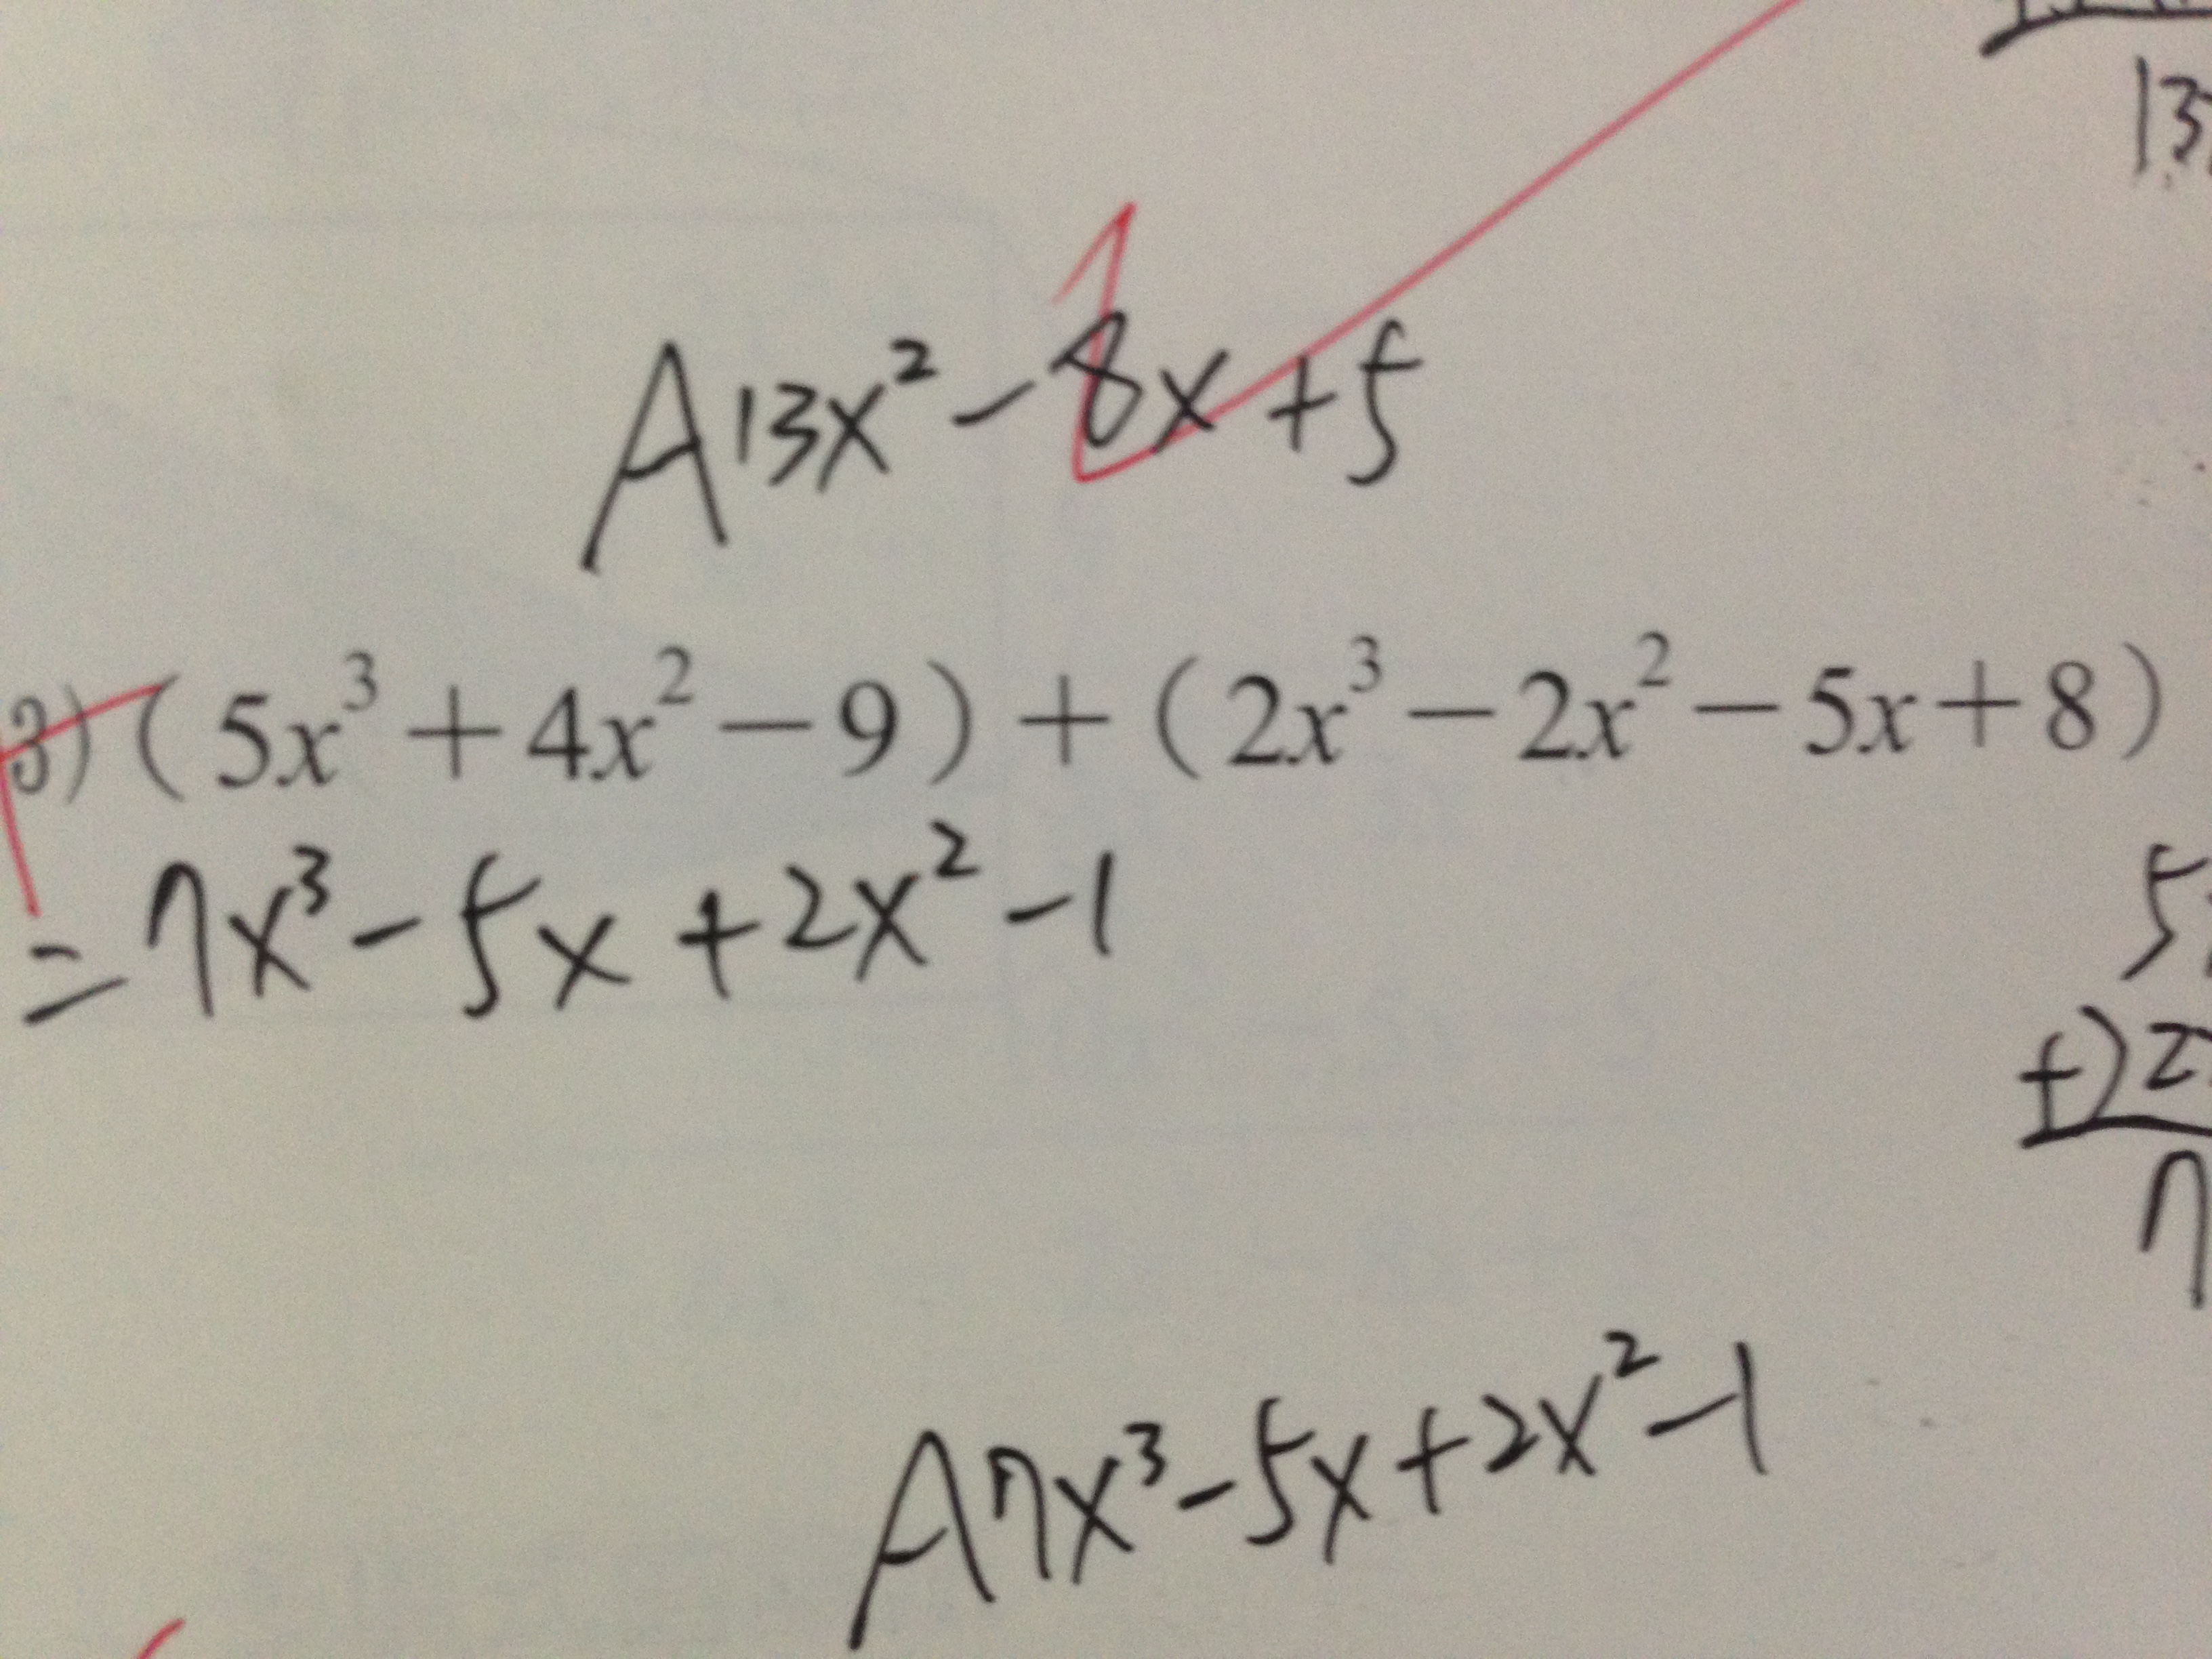 13
A 13x² - 8x + 5
3) ( 5x³ + 4x² - 9 ) + ( 2x³ - 2x² - 5x + 8 )
= 7x³ - 5x + 2x² - 1
5
+) 2
7
A 7x³ - 5x + 2x² - 1